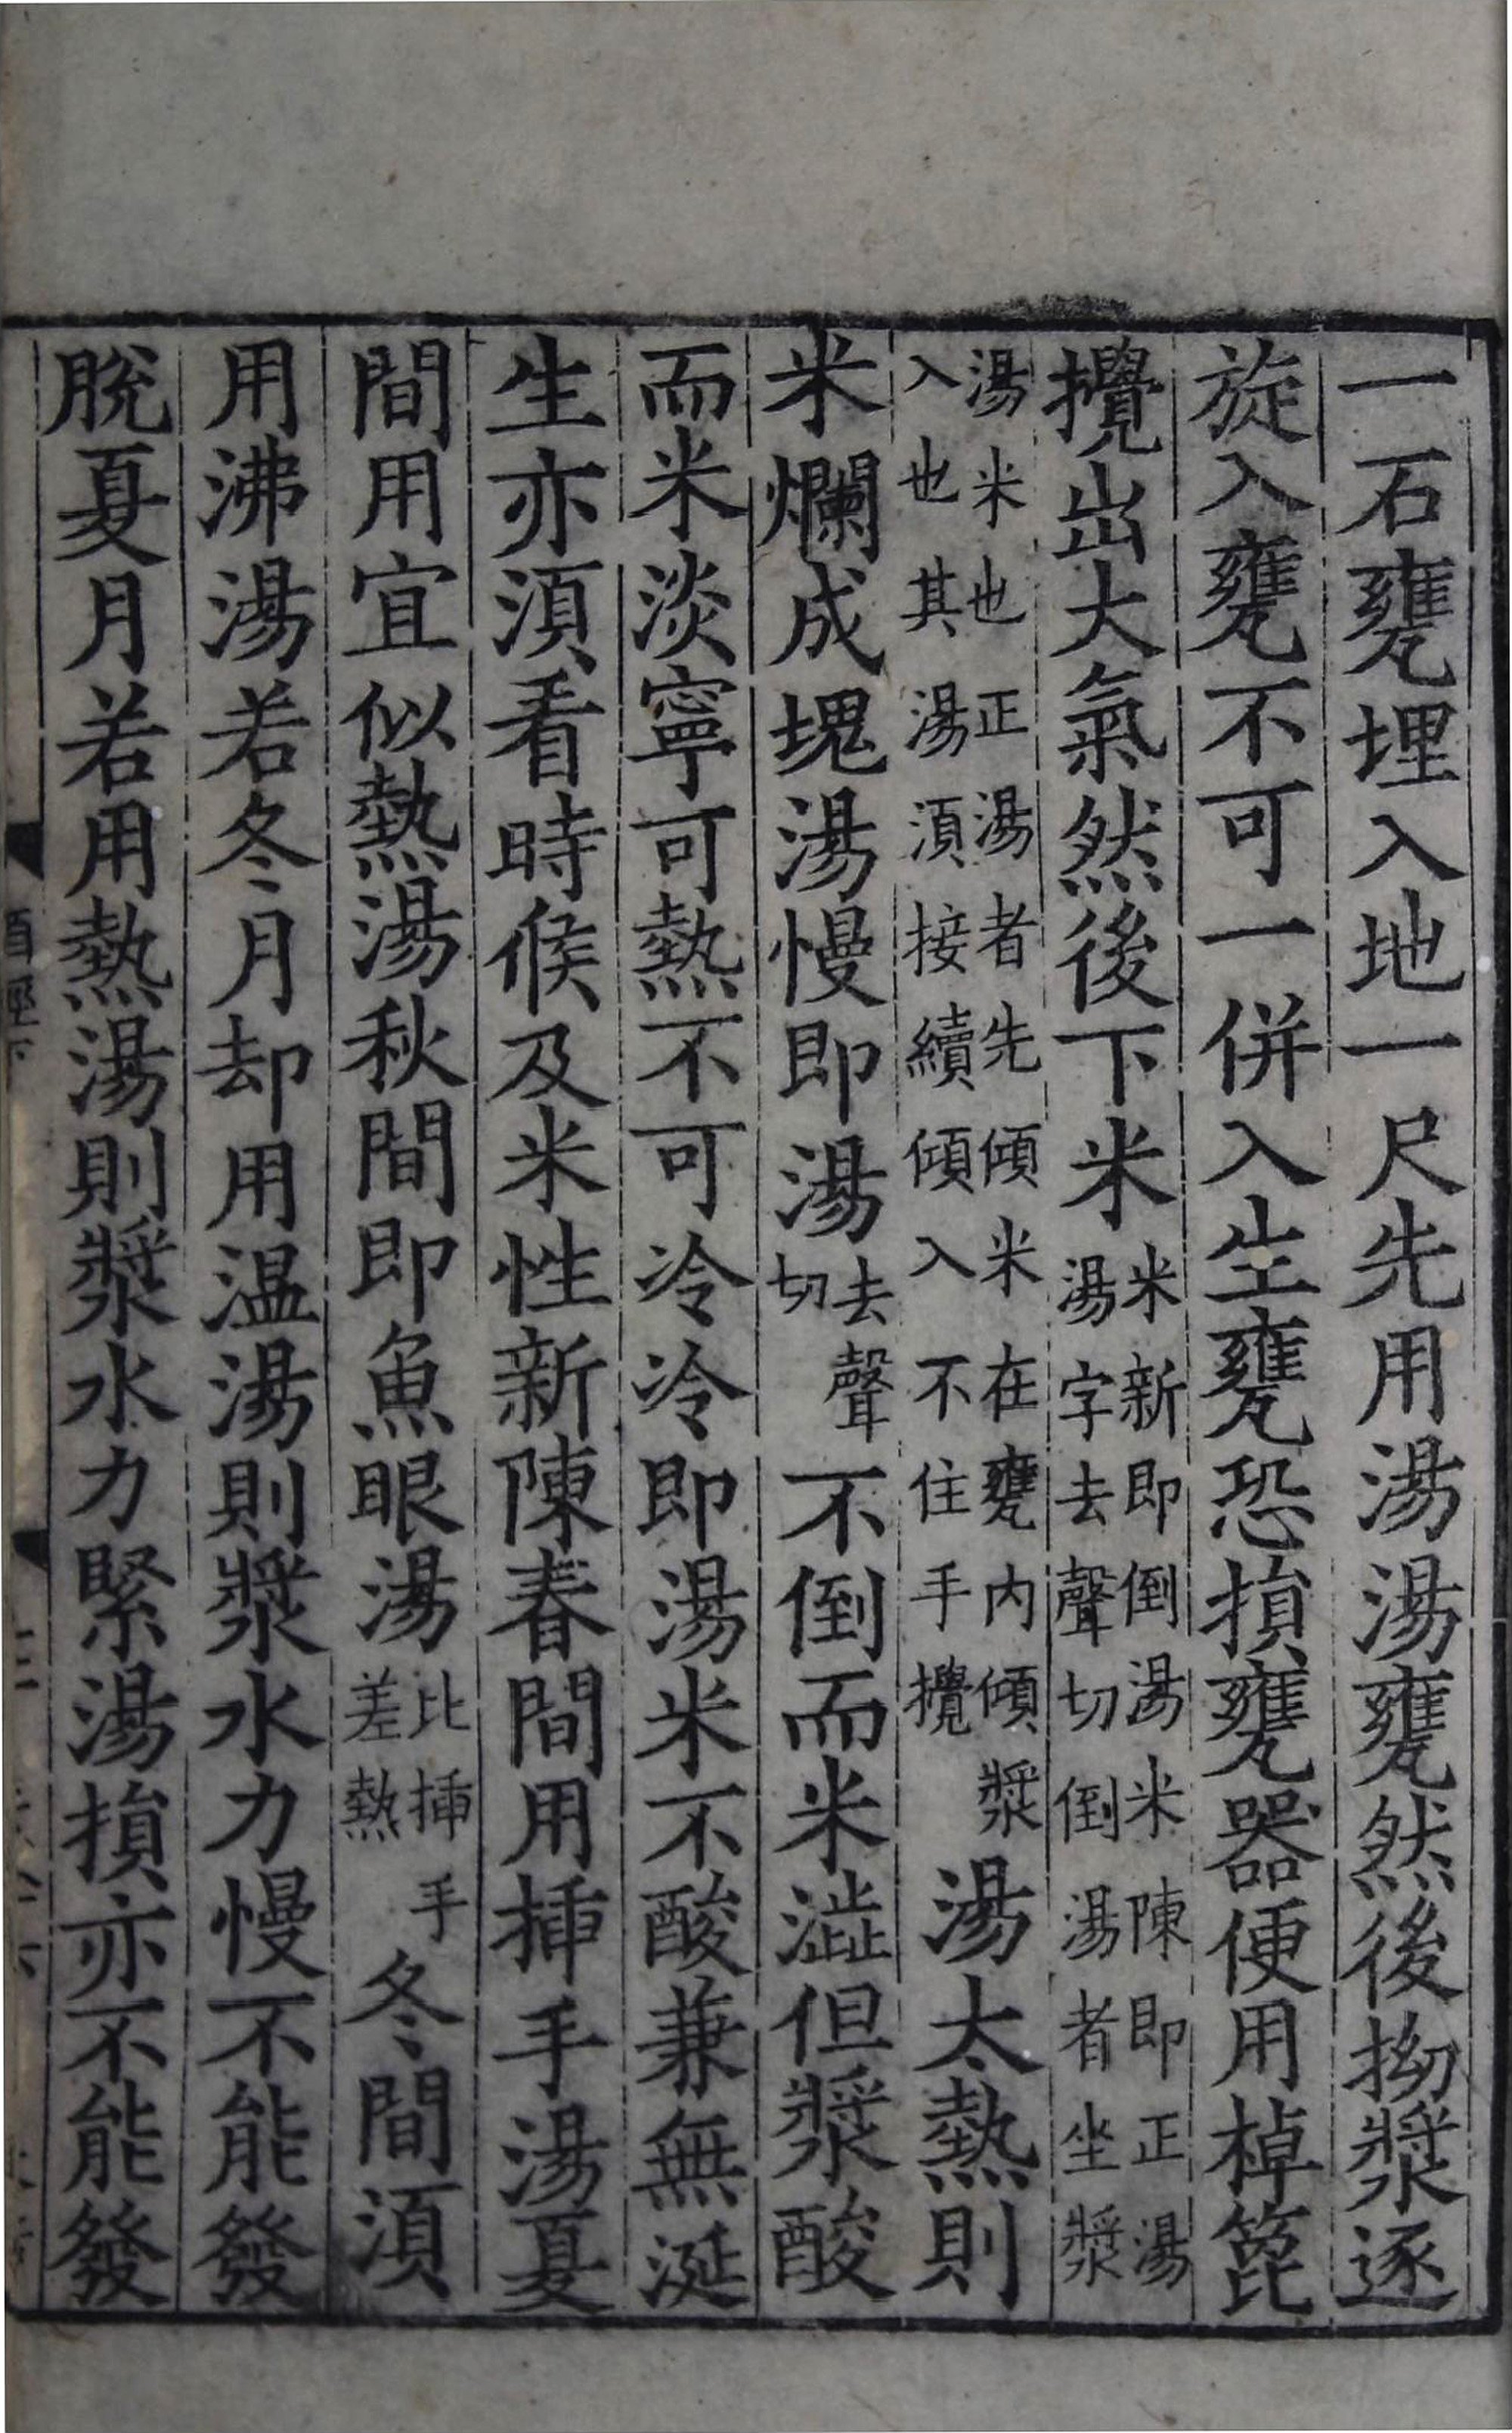 一石甕埋入地一尺先用湯湯甕然後拗漿逐
旋入甕不可一併入生甕恐損甕器便用棹篦
攪出大氣然後下米米新即倒湯米陳即正湯
湯字去聲切倒湯者坐漿
湯米也正湯者先傾米在甕內傾漿
入也其湯須接續傾入不住手攪湯太熱則
米爛成塊湯慢即湯去聲
切不倒而米澁但漿酸
而米淡寧可熱不可冷冷即湯米不酸兼無涎
生亦須看時候及米性新陳春間用揷手湯夏
間用宜似熱湯秋間即魚眼湯比揷手
差熱冬間須
用沸湯若冬月却用温湯則漿水力慢不能發
脫夏月若用熱湯則漿水力緊湯損亦不能發